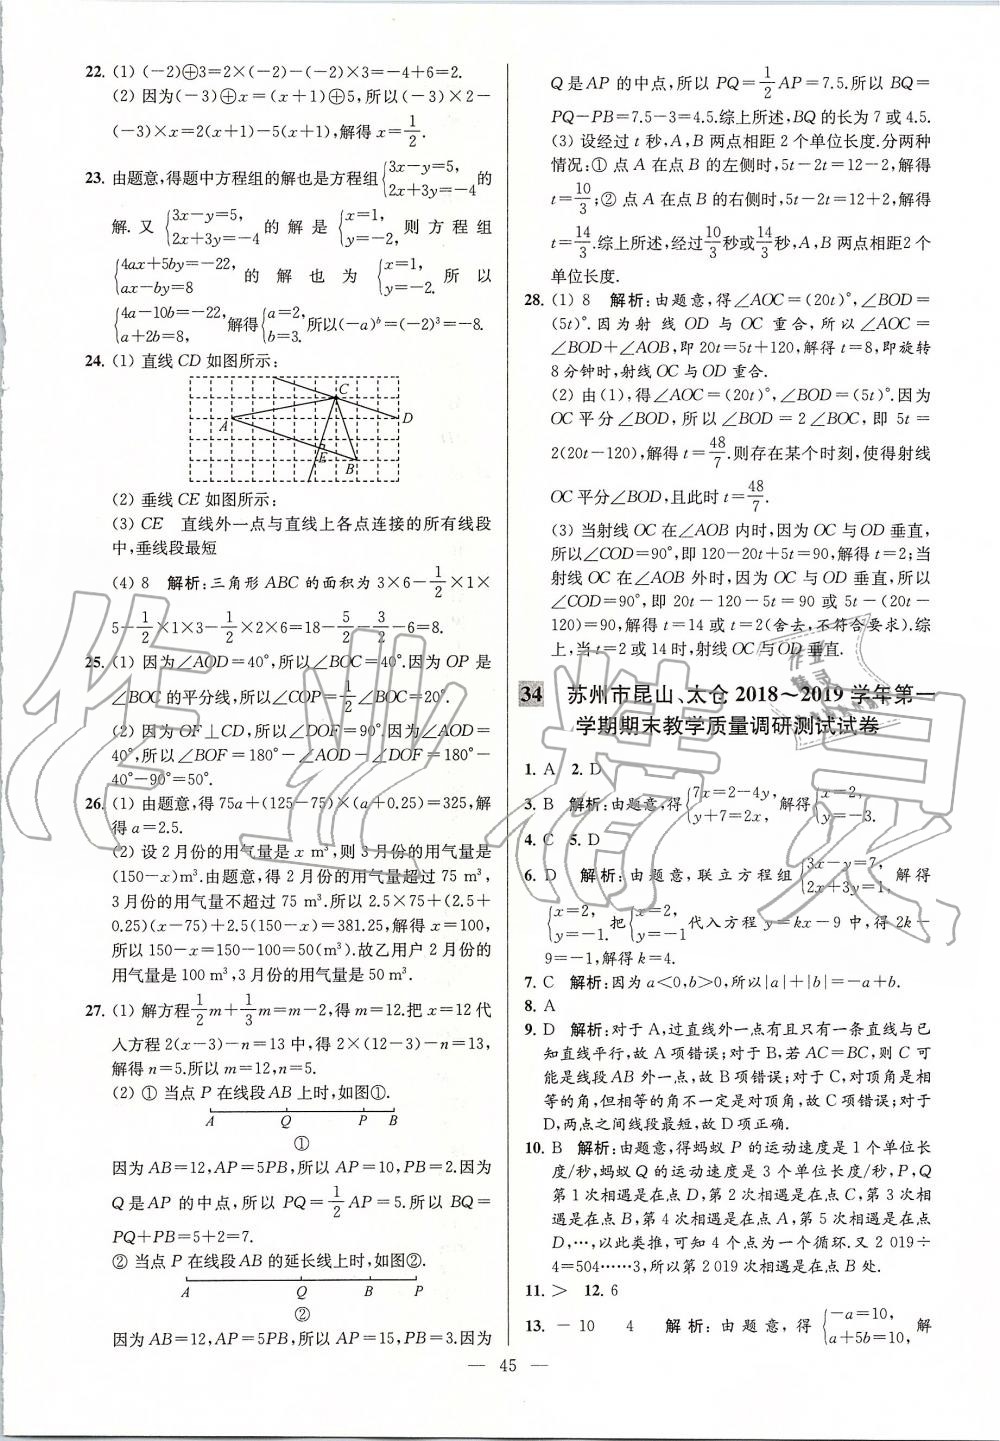 22. (1) (-2)⊕3=2×(-2)-(-2)×3=-4+6=2.
(2) 因为(-3)⊕x=(x+1)⊕5,所以(-3)×2-
(-3)×x=2(x+1)-5(x+1),解得 x=1/2.
23. 由题意,得题中方程组的解也是方程组{3x-y=5, 2x+3y=-4 的
解. 又 {3x-y=5, 2x+3y=-4 的解是 {x=1, y=-2, 则方程组
{4ax+5by=-22, ax-by=8 的解也为 {x=1, y=-2. 所以
{4a-10b=-22, a+2b=8, 解得{a=2, b=3. 所以(-a)^b=(-2)^3=-8.
24. (1) 直线 CD 如图所示:
C
A
D
E
B
(2) 垂线 CE 如图所示:
(3) CE 直线外一点与直线上各点连接的所有线段
中,垂线段最短
(4) 8 解析:三角形 ABC 的面积为 3×6-1/2×1×
5-1/2×1×3-1/2×2×6=18-5/2-3/2-6=8.
25. (1) 因为∠AOD=40°,所以∠BOC=40°.因为 OP 是
∠BOC 的平分线,所以∠COP=1/2∠BOC=20°.
(2) 因为 OF⊥CD,所以∠DOF=90°.因为∠AOD=
40°,所以∠BOF=180°-∠AOD-∠DOF=180°-
40°-90°=50°.
26. (1) 由题意,得 75a+(125-75)×(a+0.25)=325,解
得 a=2.5.
(2) 设 2 月份的用气量是 x m³,则 3 月份的用气量是
(150-x)m³.由题意,得 2 月份的用气量超过 75 m³,
3 月份的用气量不超过 75 m³.所以 2.5×75+(2.5+
0.25)(x-75)+2.5(150-x)=381.25,解得 x=100,
所以 150-x=150-100=50(m³).故乙用户 2 月份的
用气量是 100 m³,3 月份的用气量是 50 m³.
27. (1) 解方程1/2m+1/3m=m-2,得 m=12.把 x=12 代
入方程 2(x-3)-n=13 中,得 2×(12-3)-n=13,
解得 n=5.所以 m=12,n=5.
(2) ① 当点 P 在线段 AB 上时,如图①.
A Q P B
①
因为 AB=12,AP=5PB,所以 AP=10,PB=2.因为
Q 是 AP 的中点,所以 PQ=1/2AP=5.所以 BQ=
PQ+PB=5+2=7.
② 当点 P 在线段 AB 的延长线上时,如图②.
A Q B P
②
因为 AB=12,AP=5PB,所以 AP=15,PB=3.因为
Q 是 AP 的中点,所以 PQ=1/2AP=7.5.所以 BQ=
PQ-PB=7.5-3=4.5.综上所述,BQ 的长为 7 或 4.5.
(3) 设经过 t 秒,A,B 两点相距 2 个单位长度.分两种
情况:① 点 A 在点 B 的左侧时,5t-2t=12-2,解得
t=10/3;② 点 A 在点 B 的右侧时,5t-2t=12+2,解得
t=14/3.综上所述,经过10/3秒或14/3秒,A,B 两点相距2个
单位长度.
28. (1) 8 解析:由题意,得∠AOC=(20t)°,∠BOD=
(5t)°.因为射线 OD 与 OC 重合,所以∠AOC=
∠BOD+∠AOB,即 20t=5t+120,解得 t=8,即旋转
8 分钟时,射线 OC 与 OD 重合.
(2) 由(1),得∠AOC=(20t)°,∠BOD=(5t)°.因为
OC 平分∠BOD,所以∠BOD=2∠BOC,即 5t=
2(20t-120),解得 t=48/7.则存在某个时刻,使得射线
OC 平分∠BOD,且此时 t=48/7.
(3) 当射线 OC 在∠AOB 内时,因为 OC 与 OD 垂直,
所以∠COD=90°,即 120-20t+5t=90,解得 t=2;当
射线 OC 在∠AOB 外时,因为 OC 与 OD 垂直,所以
∠COD=90°,即 20t-120-5t=90 或 5t-(20t-
120)=90,解得 t=14 或 t=2(舍去,不符合要求).综
上,当 t=2 或 14 时,射线 OC 与 OD 垂直.
34 苏州市昆山、太仓 2018~2019 学年第一
学期期末教学质量调研测试试卷
1. A 2. D
3. B 解析:由题意,得{7x=2-4y, y+7=2x, 解得{x=2, y=-3.
4. C 5. D
6. D 解析:由题意,联立方程组{3x-y=7, 2x+3y=1, 解得
{x=2, y=-1. 把{x=2, y=-1 代入方程 y=kx-9 中,得 2k-
9=-1,解得 k=4.
7. C 解析:因为 a<0,b>0,所以|a|+|b|=-a+b.
8. A
9. D 解析:对于 A,过直线外一点有且只有一条直线与已
知直线平行,故 A 项错误;对于 B,若 AC=BC,则 C 可
能是线段 AB 外一点,故 B 项错误;对于 C,对顶角是相
等的角,但相等的角不一定是对顶角,故 C 项错误;对于
D,两点之间线段最短,故 D 项正确.
10. B 解析:由题意,得蚂蚁 P 的运动速度是 1 个单位长
度/秒,蚂蚁 Q 的运动速度是 3 个单位长度/秒,P,Q
第 1 次相遇是在点 D,第 2 次相遇是在点 C,第 3 次相
遇是在点 B,第 4 次相遇是在点 A,第 5 次相遇是在点
D,…,以此类推,可知 4 个点为一个循环.又 2 019÷
4=504……3,所以第 2 019 次相遇是在点 B 处.
11. > 12. 6
13. -10 4 解析:由题意,得 {-a=10, a+5b=10, 解
— 45 —
作业精灵